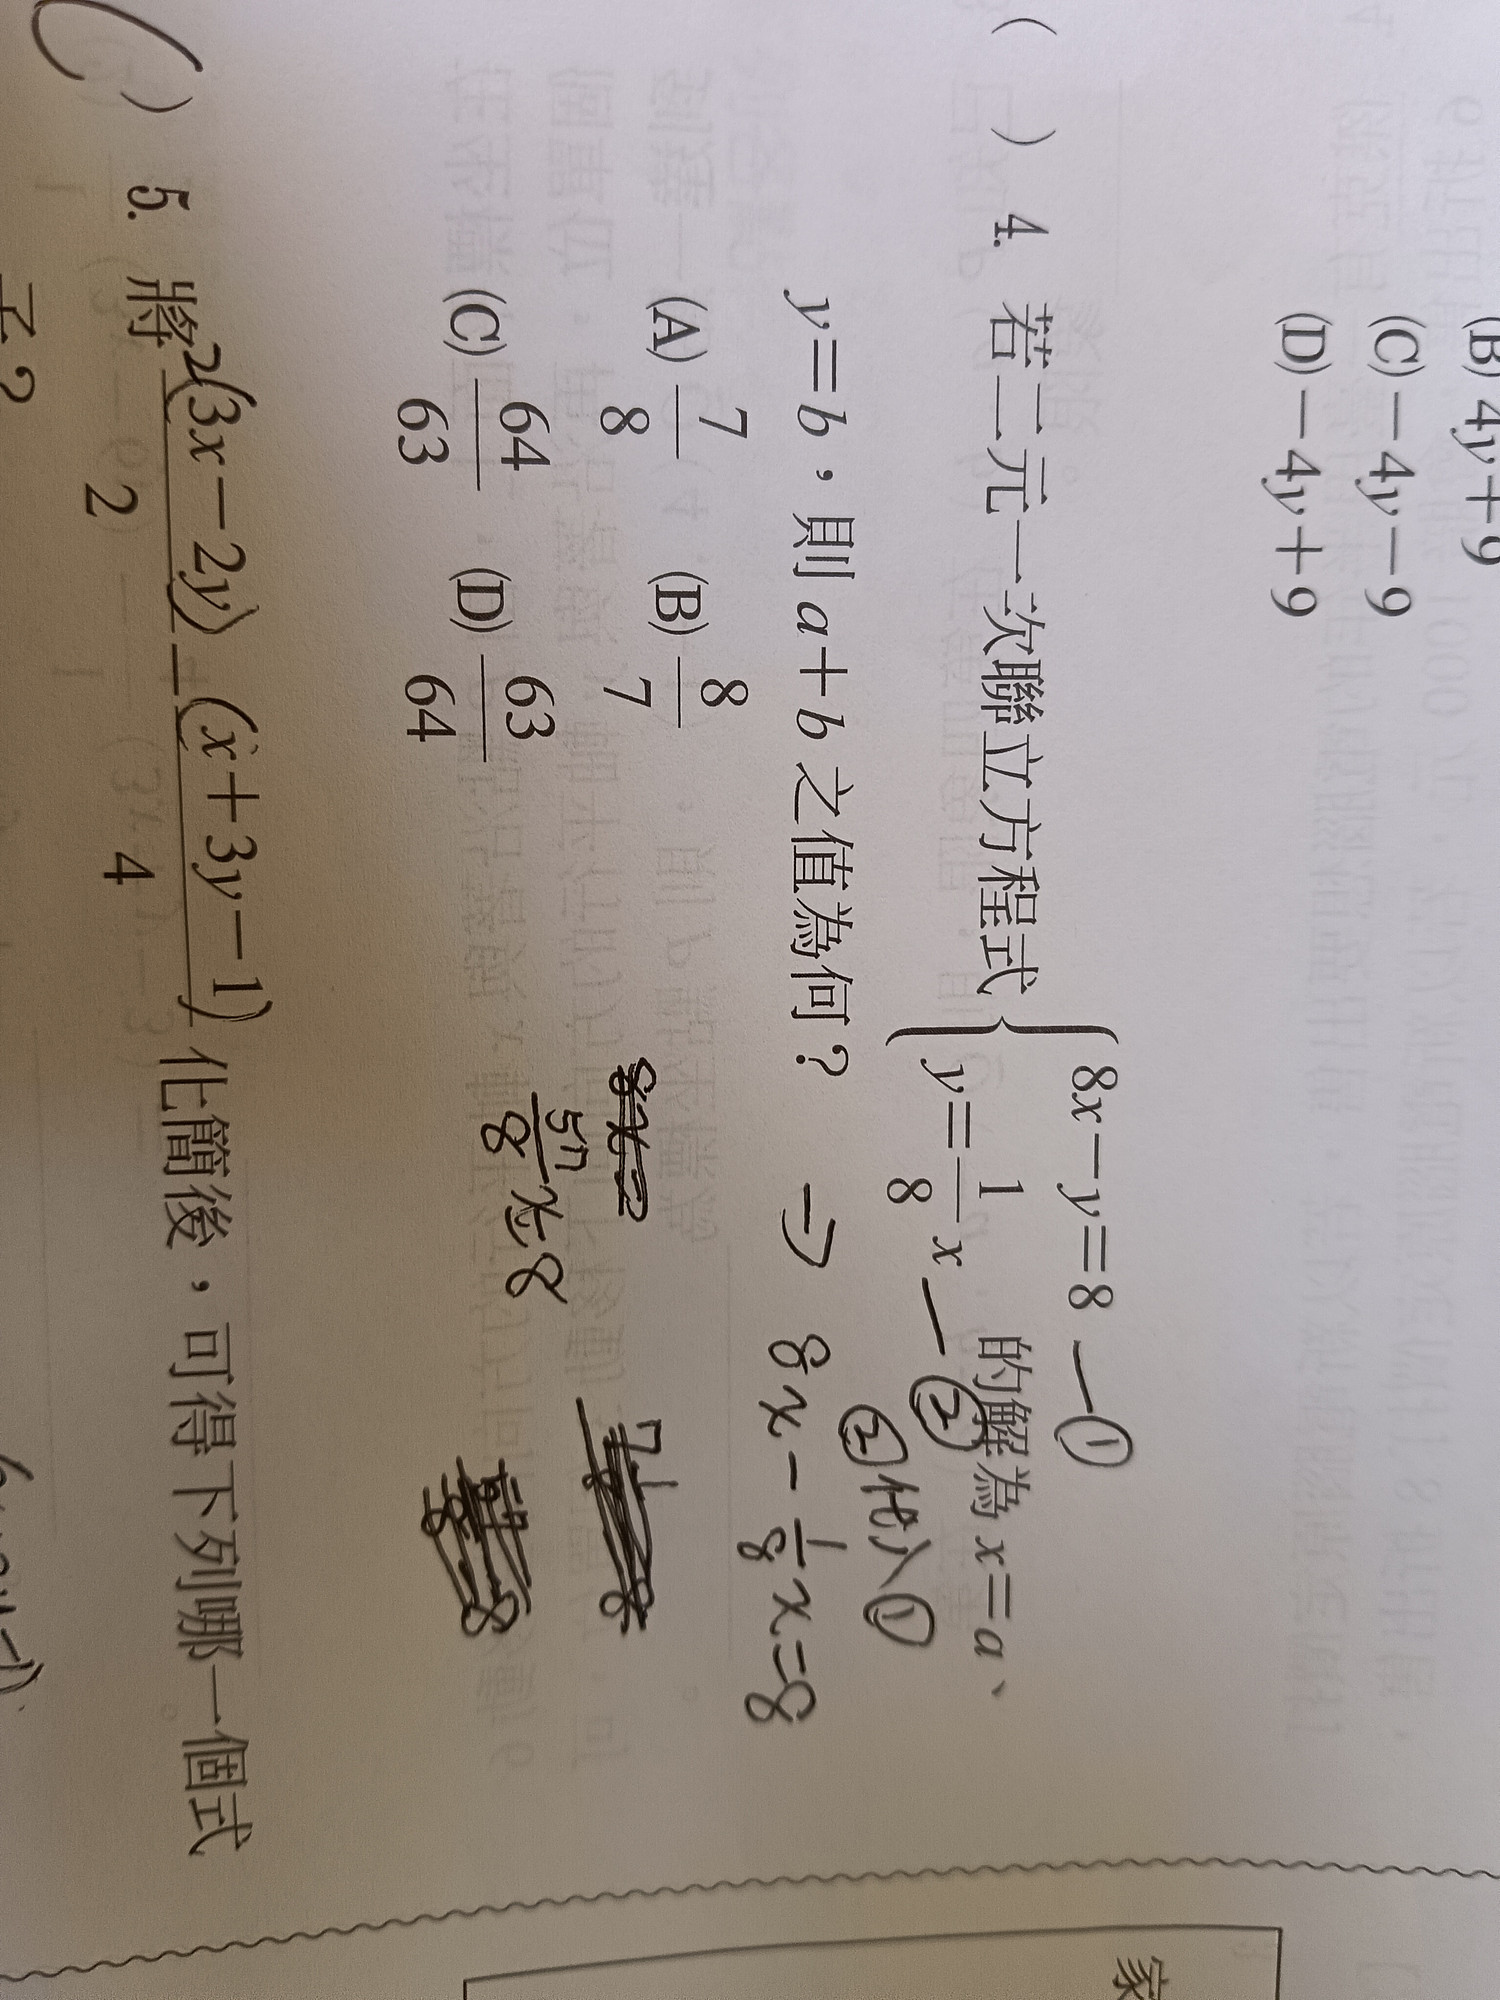 (B) 4y+9
(C) −4y−9
(D) −4y+9
( ) 4. 若二元一次聯立方程式 { 8x−y=8 —① y=\frac{1}{8}x —② 的解為 x=a、
y=b,則 a+b 之值為何?
②代入①
→ 8x − \frac{1}{8}x = 8
(A) \frac{7}{8} (B) \frac{8}{7}
(C) \frac{64}{63} (D) \frac{63}{64}
( ) 5. 將 \frac{2(3x−2y)}{2} − \frac{(x+3y−1)}{4} 化簡後,可得下列哪一個式
子?
家